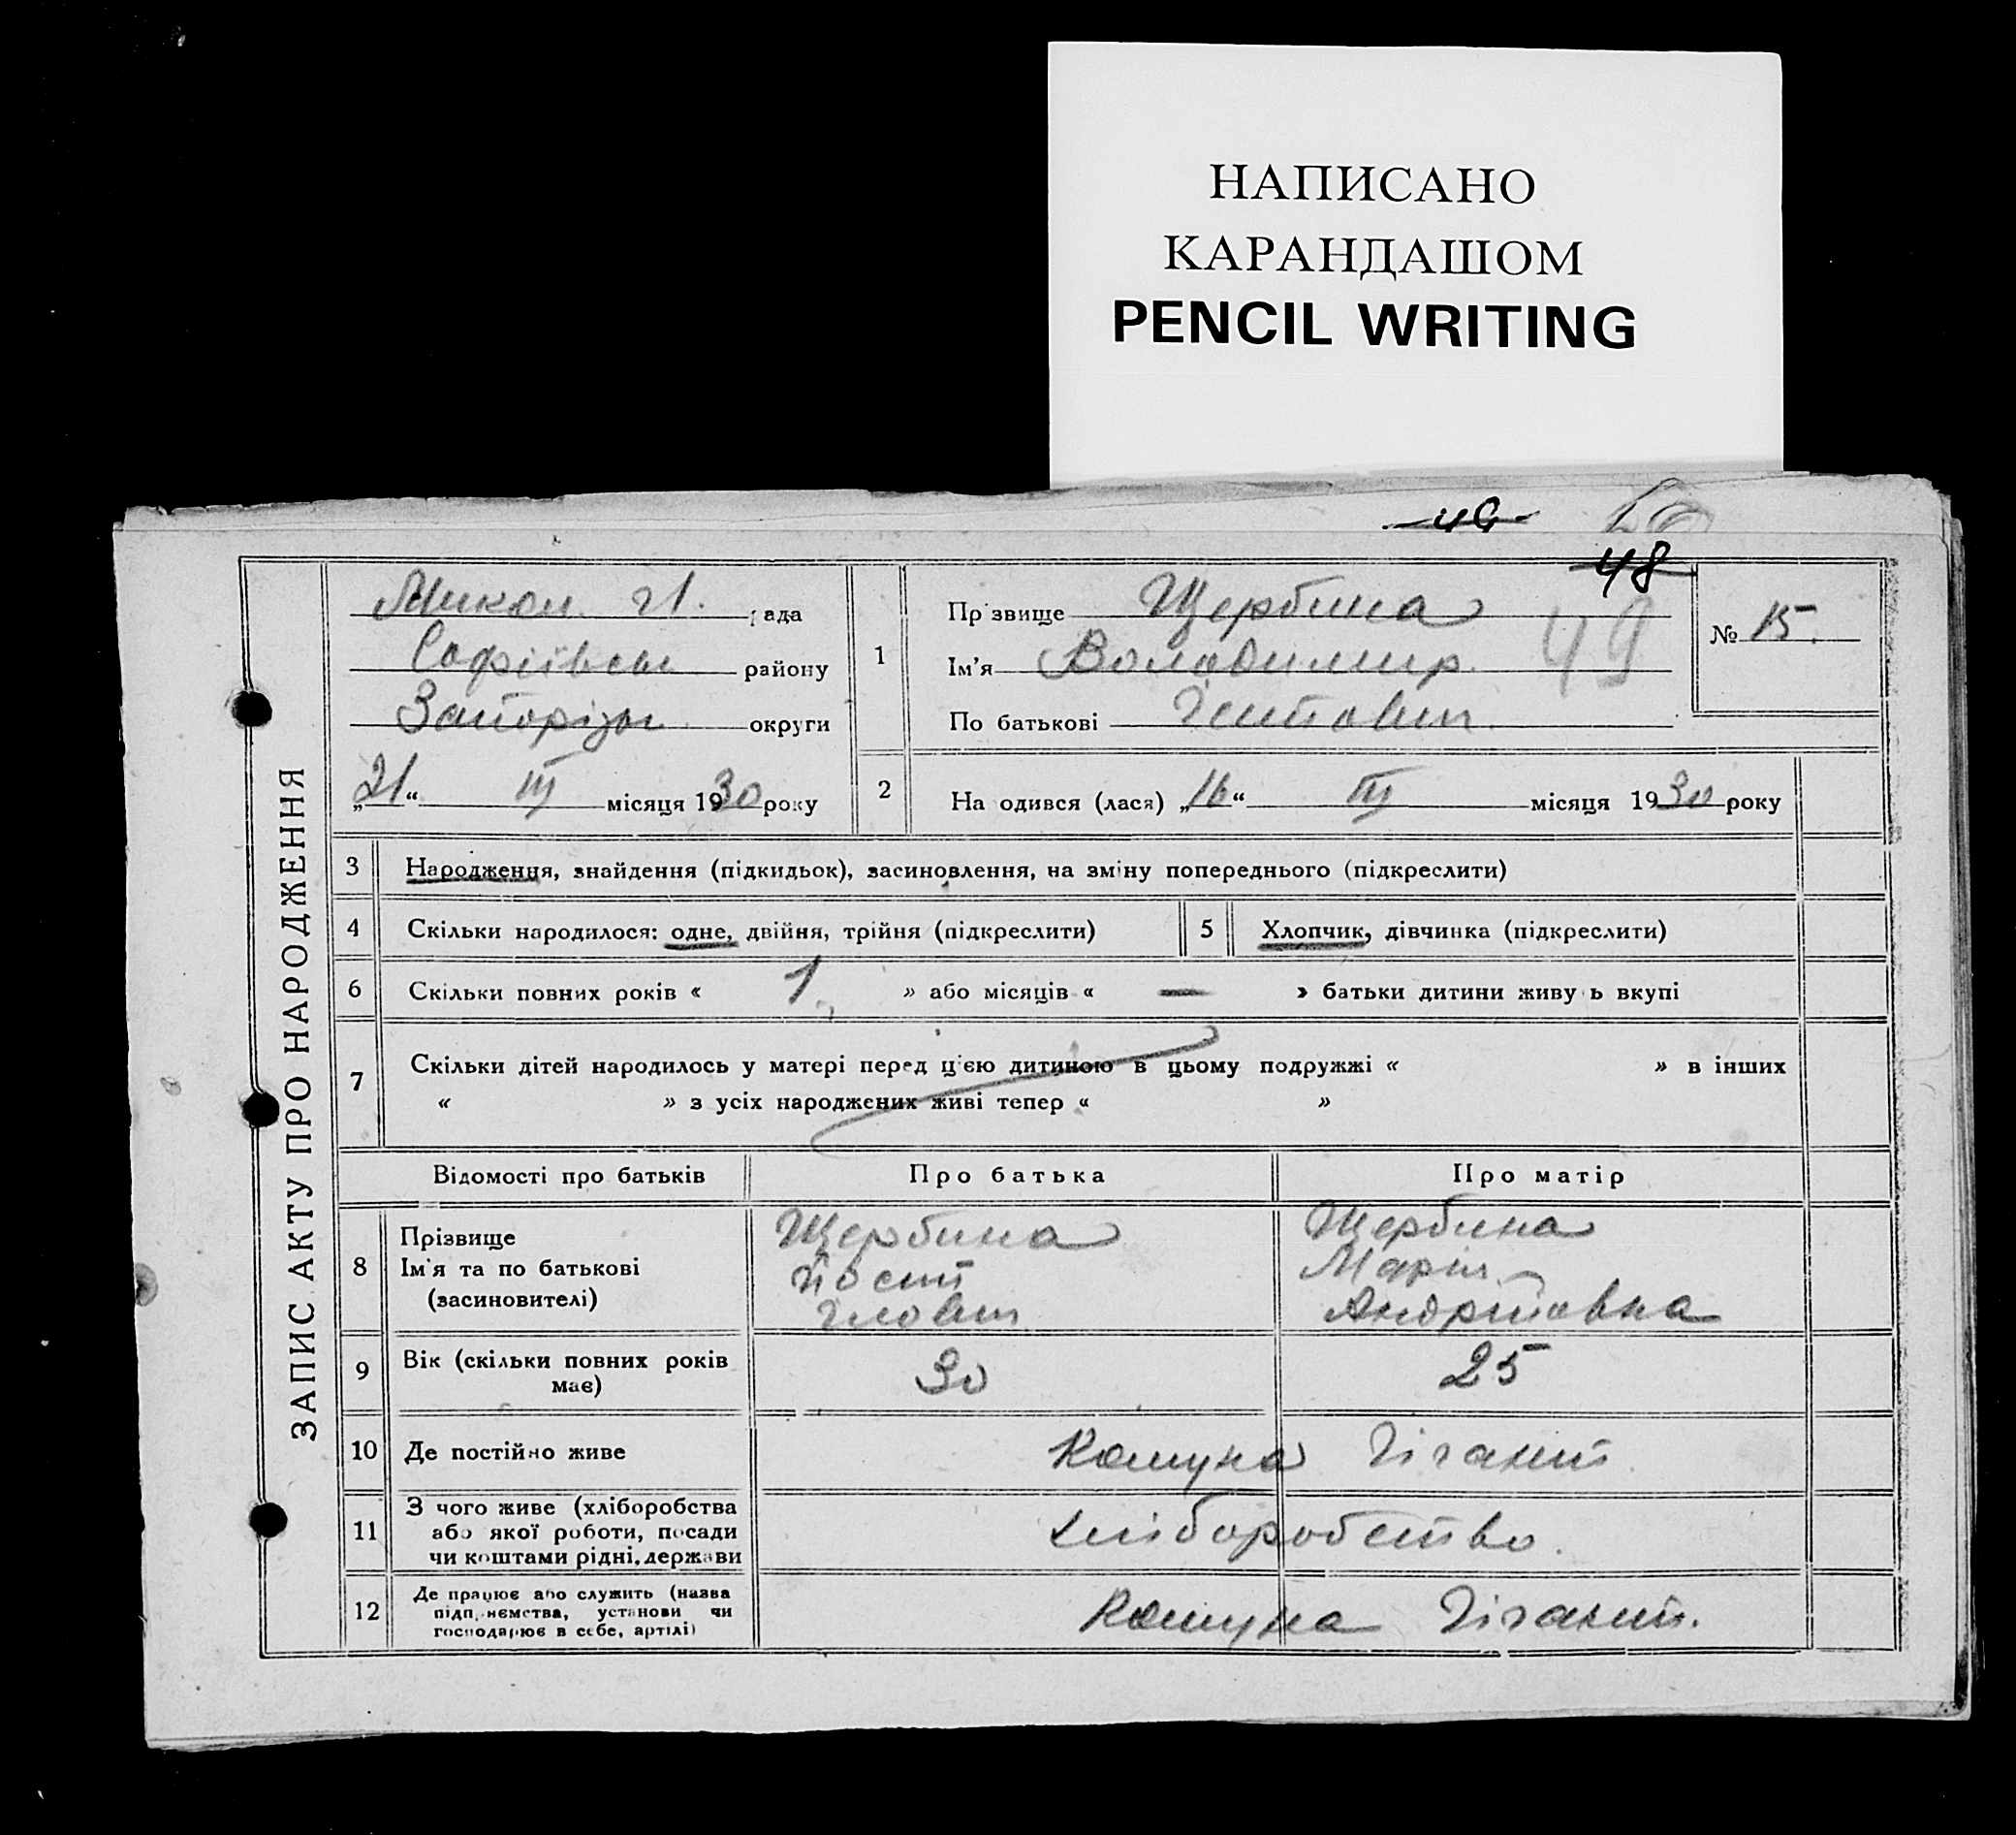 НАПИСАНО
КАРАНДАШОМ
PENCIL WRITING
49
48
49
ЗАПИС АКТУ ПРО НАРОДЖЕННЯ
Микол. рада
Софіївськ району
Запорізьк округи
„21“ III місяця 1930 року
1
Прізвище Щербина
Ім’я Володимир
По батькові
№ 15.
2 На одився (лася) „16“ III місяця 1930 року
3 Народження, знайдення (підкидьок), засиновлення, на зміну попереднього (підкреслити)
4 Скільки народилося: одне, двійня, трійня (підкреслити) 5 Хлопчик, дівчинка (підкреслити)
6 Скільки повних років « 1 » або місяців « — » батьки дитини живу ь вкупі
7 Скільки дітей народилось у матері перед цією дитиною в цьому подружжі « » в інших
« » з усіх народжених живі тепер « »
Відомості про батьків Про батька Про матір
8 Прізвище
Ім'я та по батькові
(засиновителі)
Щербина
Йосип
Щербина
Марія
Андріївна
9 Вік (скільки повних років
має)
30 25
10 Де постійно живе Комуна Гігант
11 З чого живе (хліборобства
або якої роботи, посади
чи коштами рідні, держави
хліборобство.
12 Де працює або служить (назва
підприємства, установи чи
господарює в себе, артілі)
Комуна Гігант.